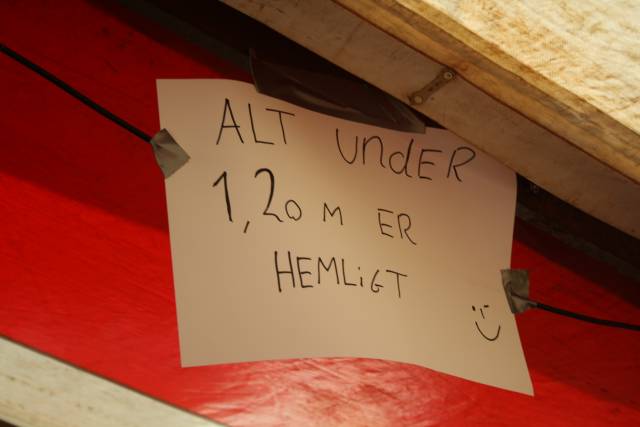 ALT UNdER
1,20 M ER
HEMLiGT